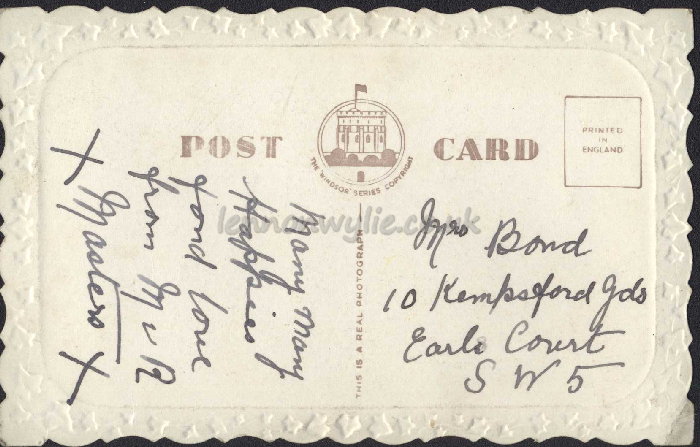 POST CARD
THE "WINDSOR" SERIES COPYRIGHT
PRINTED
IN
ENGLAND
THIS IS A REAL PHOTOGRAPH
lennonwylie.co.uk
Many Many
Happies
fond love
from M & R
X Masters X
Mrs Bond
10 Kempsford Gds
Earls Court
S W 5